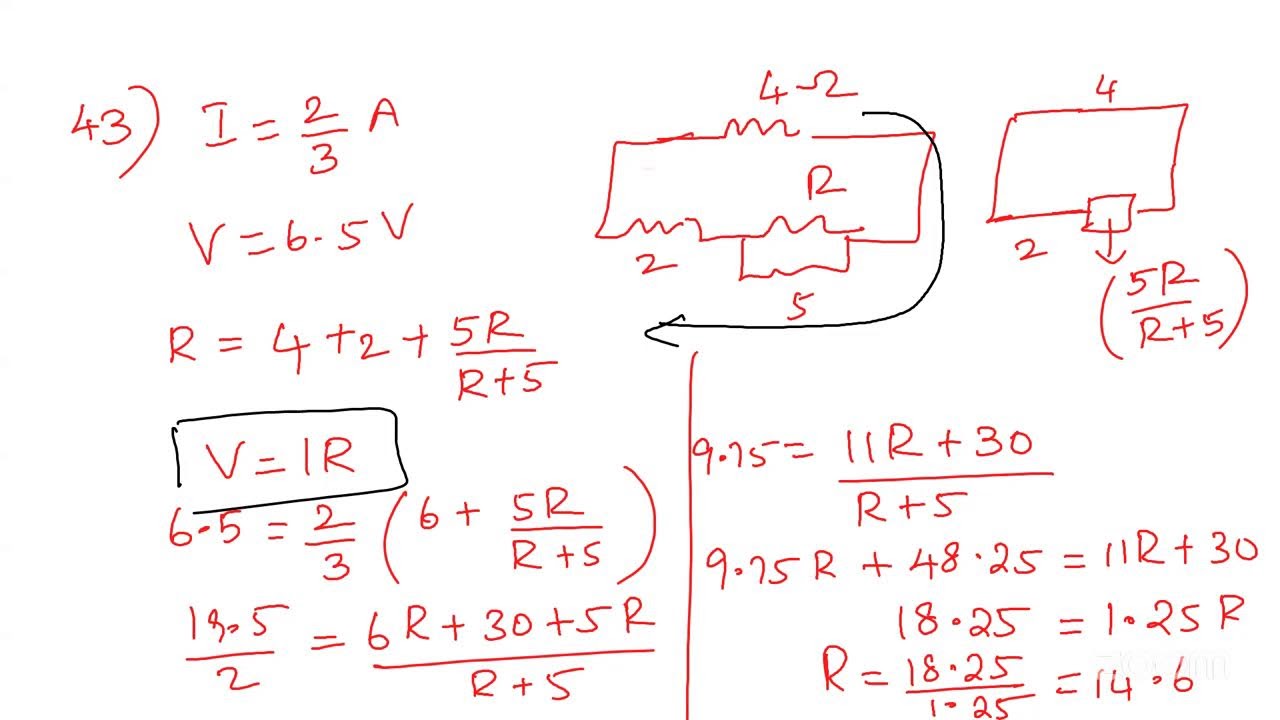 43) I = 2/3 A
V = 6.5 V
R = 4 + 2 + 5R/(R+5)
V = IR
6.5 = 2/3 (6 + 5R/(R+5))
19.5/2 = (6R + 30 + 5R)/(R+5)
4 Ω
R
2
5
4
2
(5R/(R+5))
9.75 = (11R + 30)/(R+5)
9.75 R + 48.25 = 11R + 30
18.25 = 1.25 R
R = 18.25/1.25 = 14.6